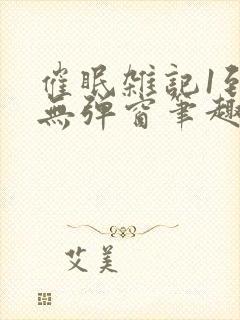 催眠雑記1到
無弹窗筆趣
艾美